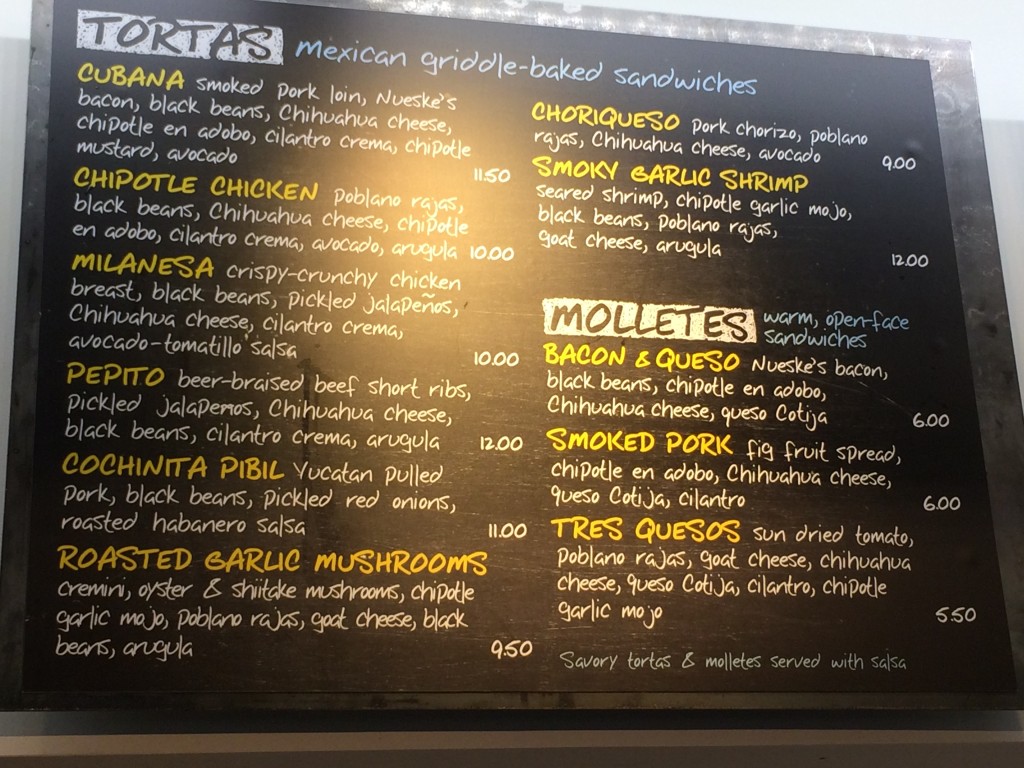 TORTAS mexican griddle-baked sandwiches
CUBANA smoked pork loin, Nueske's
bacon, black beans, Chihuahua cheese,
chipotle en adobo, cilantro crema, chipotle
mustard, avocado 11.50
CHIPOTLE CHICKEN poblano rajas,
black beans, Chihuahua cheese, chipotle
en adobo, cilantro crema, avocado, arugula 10.00
MILANESA crispy-crunchy chicken
breast, black beans, pickled jalapeños,
Chihuahua cheese, cilantro crema,
avocado-tomatillo salsa 10.00
PEPITO beer-braised beef short ribs,
pickled jalapeños, Chihuahua cheese,
black beans, cilantro crema, arugula 12.00
COCHINITA PIBIL Yucatan pulled
pork, black beans, pickled red onions,
roasted habanero salsa 11.00
ROASTED GARLIC MUSHROOMS
cremini, oyster & shiitake mushrooms, chipotle
garlic mojo, poblano rajas, goat cheese, black
beans, arugula 9.50
CHORIQUESO pork chorizo, poblano
rajas, Chihuahua cheese, avocado 9.00
SMOKY GARLIC SHRIMP
seared shrimp, chipotle garlic mojo,
black beans, poblano rajas,
goat cheese, arugula 12.00
MOLLETES warm, open-face
sandwiches
BACON & QUESO Nueske's bacon,
black beans, chipotle en adobo,
Chihuahua cheese, queso Cotija 6.00
SMOKED PORK fig fruit spread,
chipotle en adobo, Chihuahua cheese,
queso Cotija, cilantro 6.00
TRES QUESOS sun dried tomato,
poblano rajas, goat cheese, chihuahua
cheese, queso Cotija, cilantro, chipotle
garlic mojo 5.50
Savory tortas & molletes served with salsa